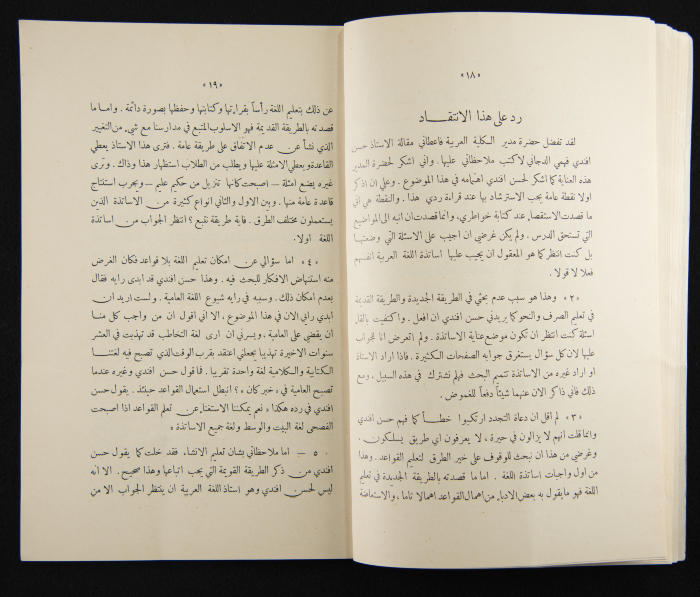 «١٨»
رد على هذا الانتقـــاد
لقد تفضل حضرة مدير الكلية العربية فاعطاني مقالة الاستاذ حسن
افندي فهمي الدجاني لاكتب ملاحظاتي عليها. واني اشكر لحضرة المدير
هذه العناية كما اشكر لحسن افندي اهتمامه في هذا الموضوع. وعلي ان اذكر
اولا نقطة عامة يجب الاسترشاد بها عند قراءة ردي هذا. والنقطة هي اني
ما قصدت الاستقصاء عند كتابة خواطري، وانما قصدت ان انبه الى المواضيع
التي تستحق الدرس. ولم يكن غرضي ان اجيب على الاسئلة التي وضعتها
بل كنت انتظر كما هو المعقول ان يجيب عليها اساتذة اللغة العربية انفسهم
فعلا لا قولا.
«٢» وهذا هو سبب عدم بحثي في الطريقة الجديدة والطريقة القديمة
في تعليم الصرف والنحو كما يريدني حسن افندي ان افعل. واكتفيت بالقاء
اسئلة كنت انتظر ان تكون موضع عناية الاساتذة. ولم اتعرض انا للجواب
عليها لان كل سؤال يستغرق جوابه الصفحات الكثيرة. فاذا اراد الاستاذ
او اراد غيره من الاساتذة تتميم البحث فهلم نشترك في هذه السبيل، ومع
ذلك فاني ذاكر الان عنهما شيئاً دفعاً للغموض.
«٣» لم اقل ان دعاة التجدد ارتكبوا خطــأ كما فهم حسن افندي
وانما قلت انهم لا يزالون في حيرة، لا يعرفون اي طريق يسلكون.
وغرضي من هذا ان نبحث للوقوف على خير الطرق لتعليم القواعد. وهذا
من اول واجبات اساتذة اللغة. اما ما قصدته بالطريقة الجديدة في تعليم
اللغة فهو ما يقول به بعض الادباء من اهمال القواعد اهمالا تاما، والاستعاضة
«١٩»
عن ذلك بتعليم اللغة رأساً بقراءتها وكتابتها وحفظها بصورة دائمة. واما ما
قصدته بالطريقة القديمة فهو الاسلوب المتبع في مدارسنا مع شيء من التغيير
الذي نشأ عن عدم الاتفاق على طريقة عامة. فترى هذا الاستاذ يعطي
القاعدة ويعطي الامثلة عليها ويطلب من الطلاب استظهار هذا وذاك. وترى
غيره يضع امثلة – اصبحت كانها تنزيل من حكيم عليم – ويجرب استنتاج
قاعدة عامة منها. وبين الاول والثاني انواع كثيرة من الاساتذة الذين
يستعملون مختلف الطرق. فاية طريقة نتبع؟ انتظر الجواب من اساتذة
اللغة اولا.
«٤» اما سؤالي عن امكان تعليم اللغة بلا قواعد فكان الغرض
منه استنهاض الافكار للبحث فيه. وهذا حسن افندي قد ابدى رايه فقال
بعدم امكان ذلك. وسببه في رايه شيوع اللغة العامية. ولست اريد ان
ابدي رايي الان في هذا الموضوع، الا اني اقول ان من واجب كل منا
ان يقضي على العامية، ويسرني ان ارى لغة التخاطب قد تهذبت في العشر
سنوات الاخيرة تهذيبا يجعلني اعتقد بقرب الوقت الذي تصبح فيه لغتنــا
الكتابية والكلامية لغة واحدة تقريبا. فما قول حسن افندي وغيره عندما
تصبح العامية في «خبر كان»؟ انبطل استعمال القواعد حينئذ. يقول حسن
افندي في رده هكذا «نعم يمكننا الاستغناء عن تعلم القواعد اذا اصبحت
الفصحى لغة البيت والوسط ولغة جميع الاساتذة»
«٥» – اما ملاحظاتي بشان تعليم الانشاء. فقد خلت كما يقول حسن
افندي من ذكر الطريقة القويمة التي يجب اتباعها وهذا صحيح. الا انه
ليس لحسن افندي وهو استاذ اللغة العربية ان ينتظر الجواب الا من